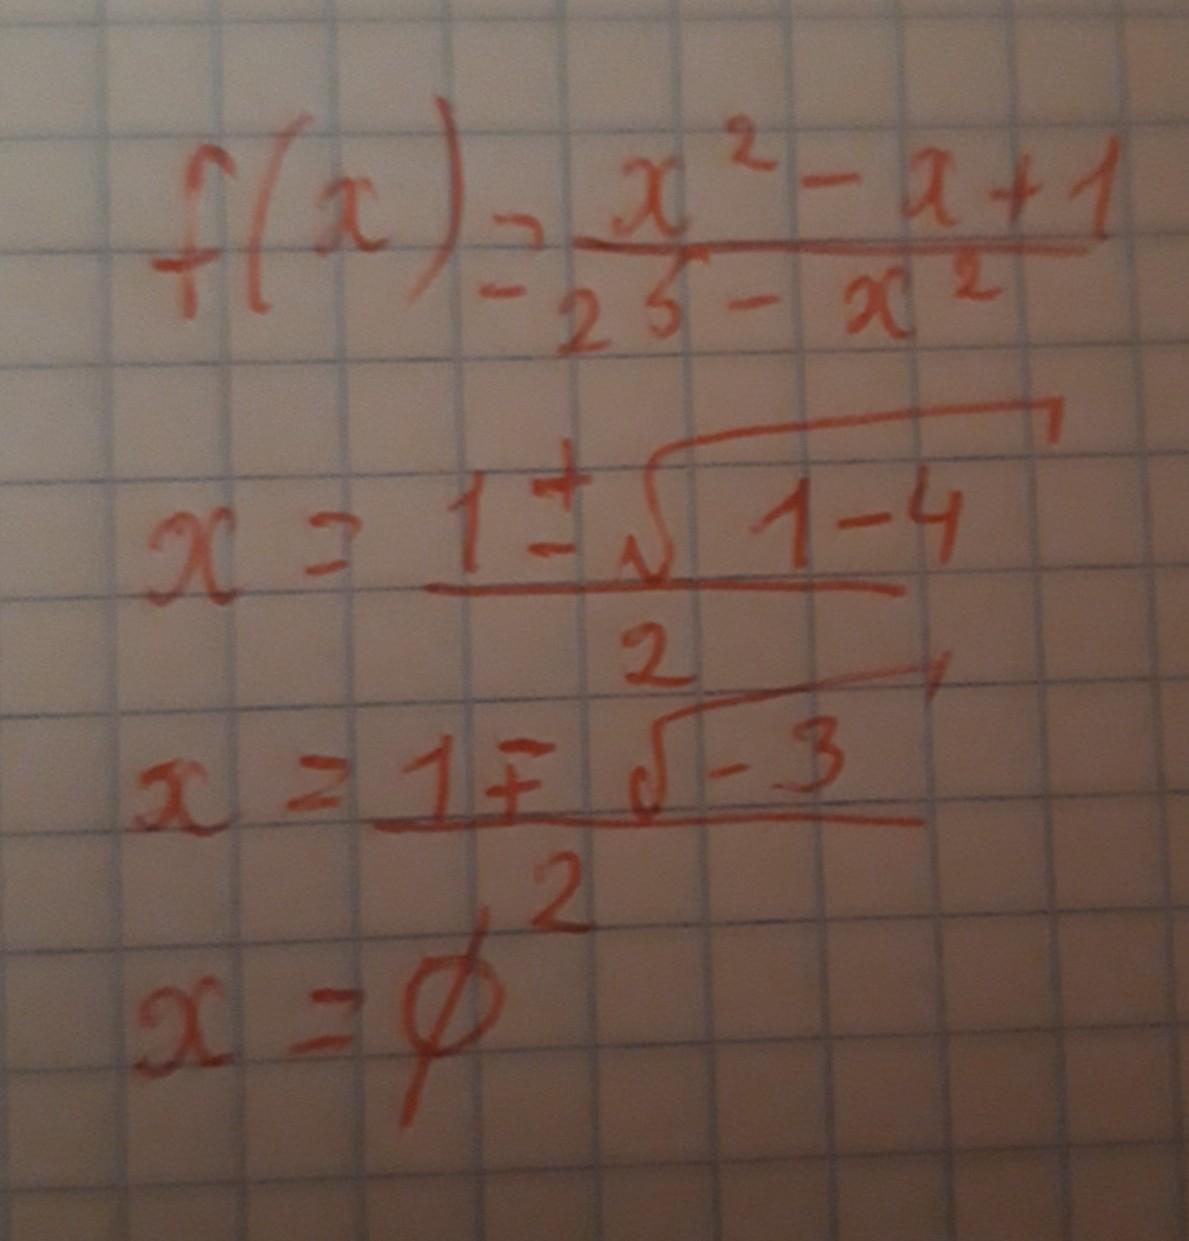 f(x) = \frac{x^2 - x + 1}{25 - x^2}
x = \frac{1 \pm \sqrt{1 - 4}}{2}
x = \frac{1 \mp \sqrt{-3}}{2}
x = ∅